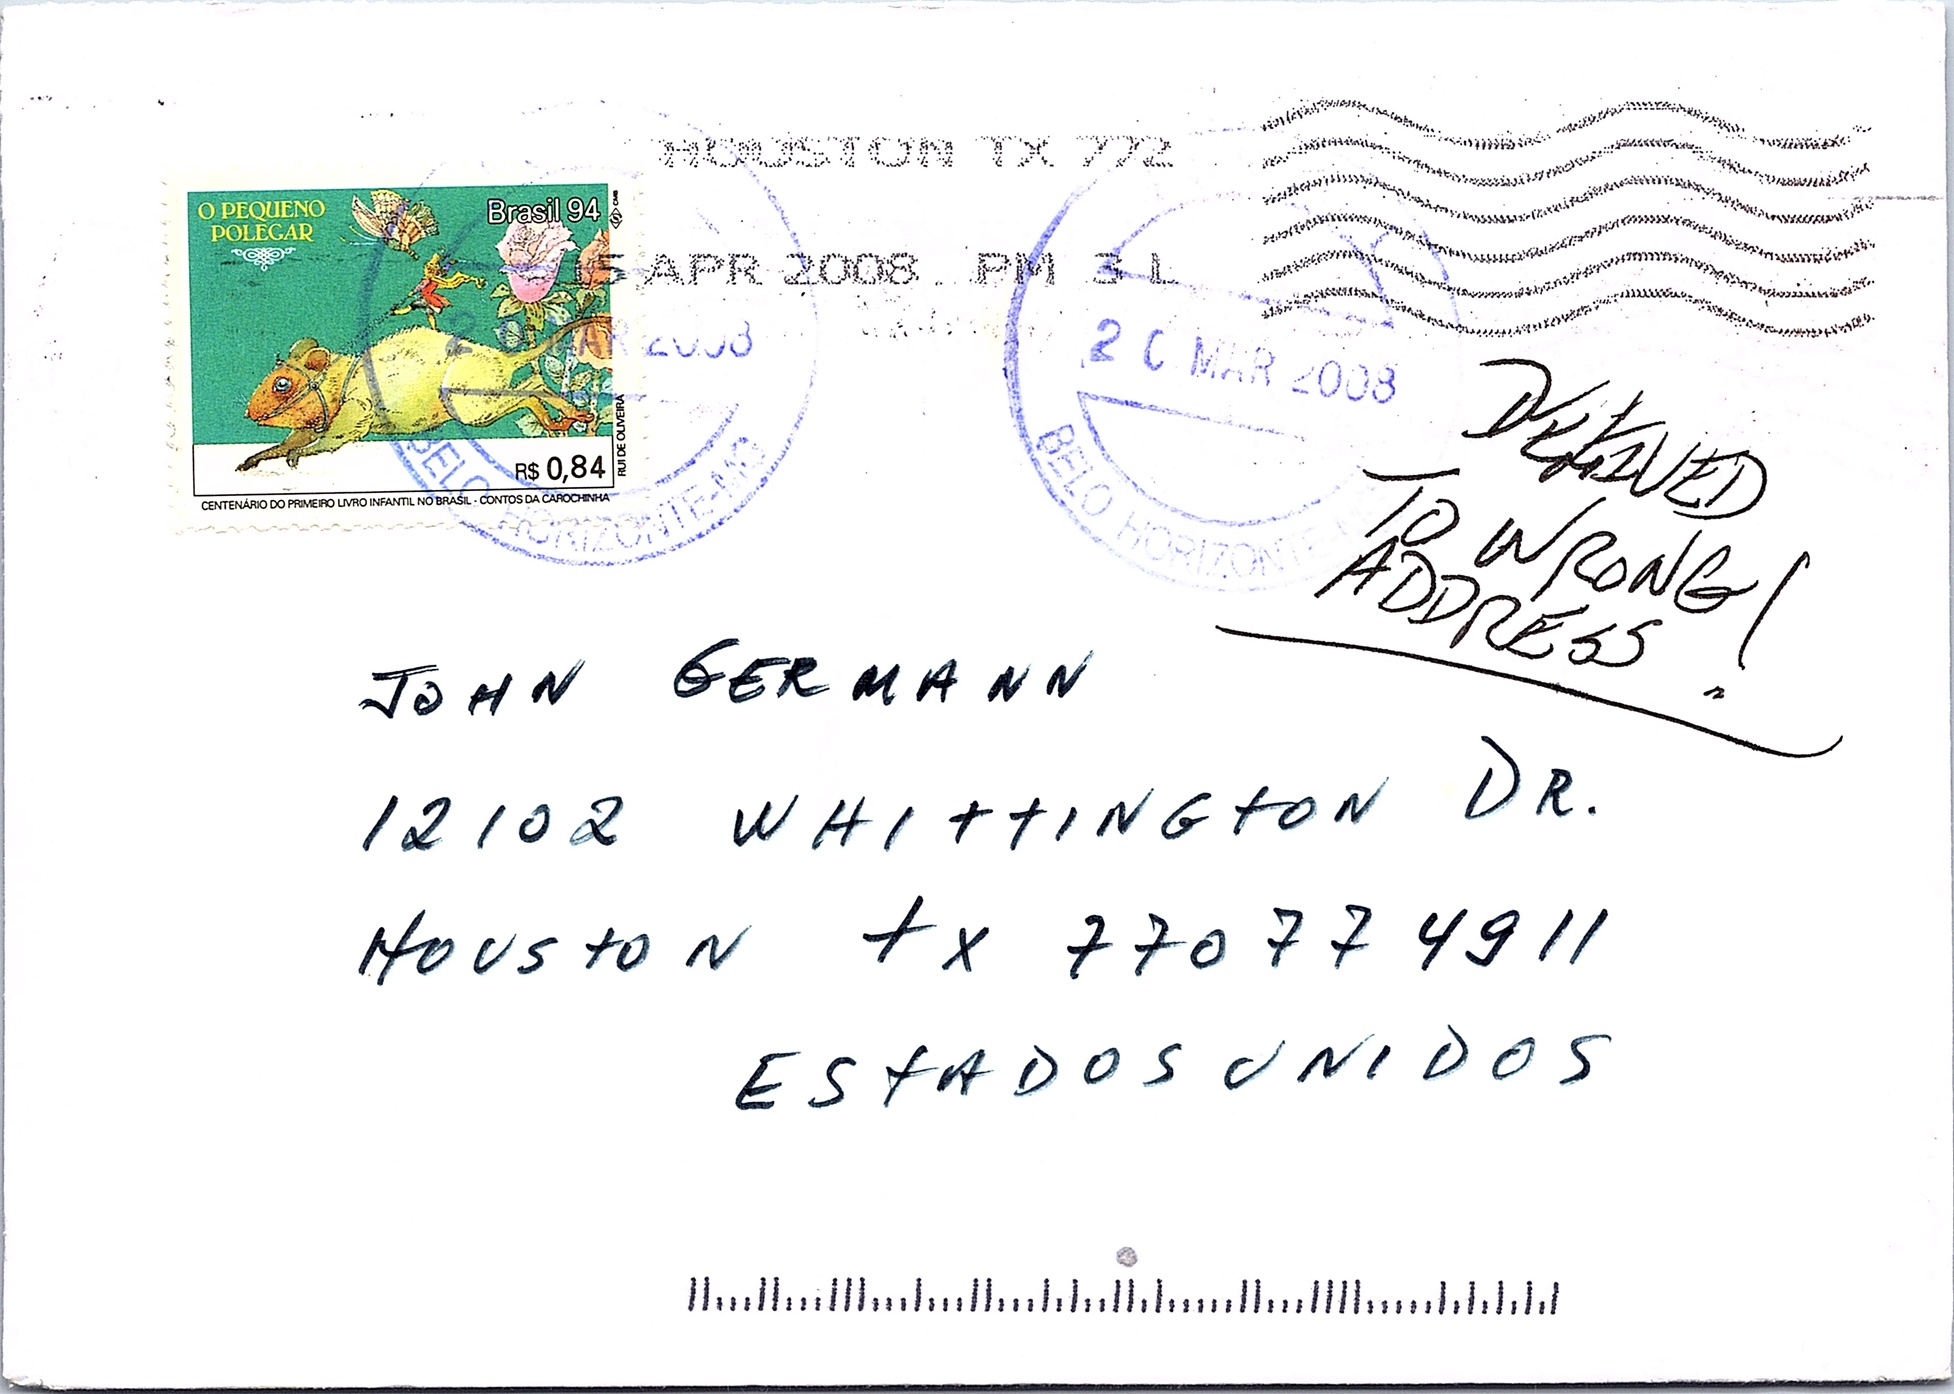 HOUSTON TX 772
15 APR 2008 PM 3 L
O PEQUENO
POLEGAR
Brasil 94
R$ 0,84
RUI DE OLIVEIRA
CENTENÁRIO DO PRIMEIRO LIVRO INFANTIL NO BRASIL - CONTOS DA CAROCHINHA
MAR 2008
BELO HORIZONTE-MG
20 MAR 2008
BELO HORIZONTE
TO WRONG!
ADDRESS
JOHN GERMANN
12102 WHITTINGTON DR.
HOUSTON TX 770774911
ESTADOS UNIDOS